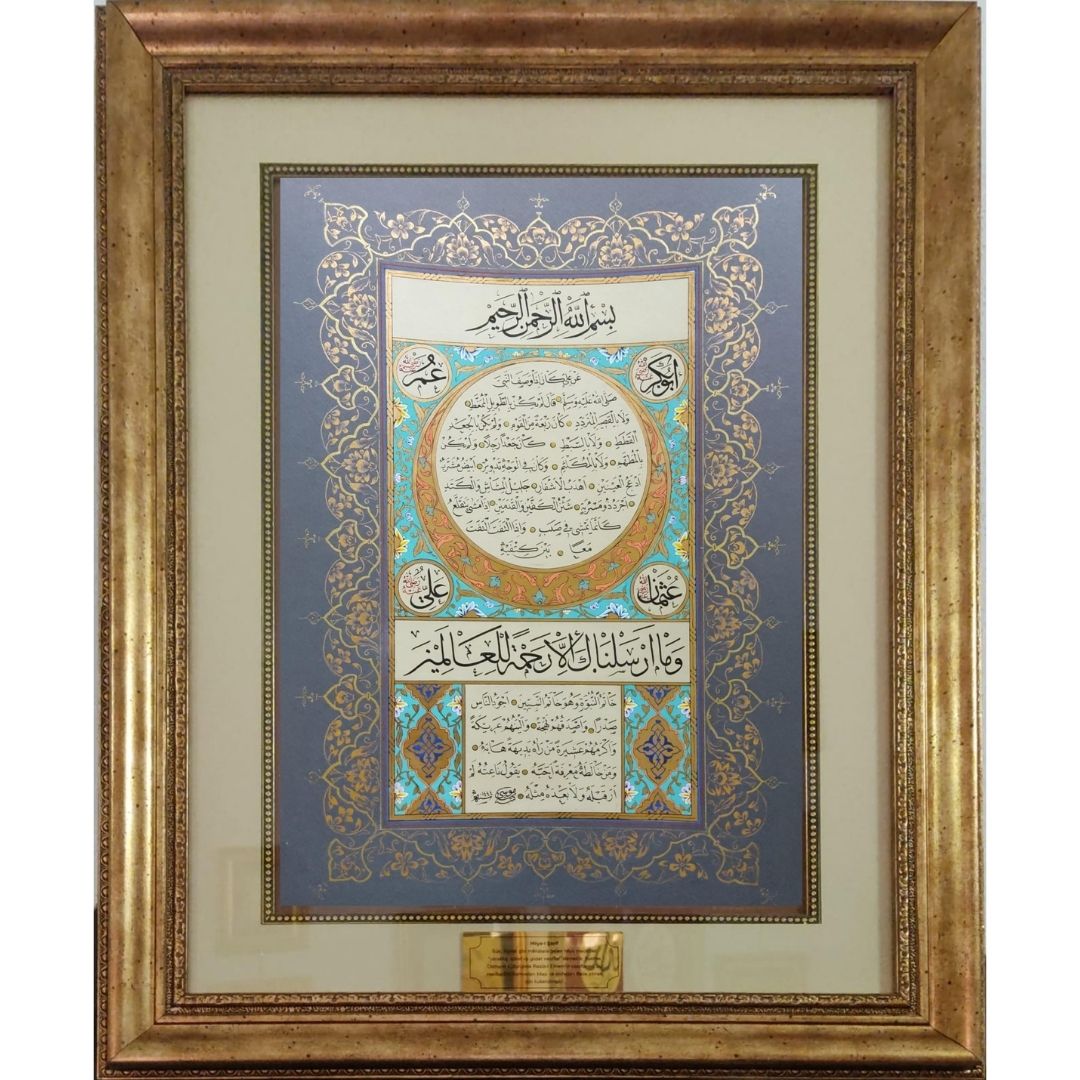 بِسْمِ اللّٰهِ الرَّحْمٰنِ الرَّحِيمِ
ابوبكر
عمر
عن علي كان اذا وصف النبي
صلى الله عليه وسلم قال لم يكن بالطويل الممغط
ولا بالقصير المتردد كان ربعة من القوم ولم يكن بالجعد
القطط ولا بالسبط كان جعدا رجلا ولم يكن
بالمطهم ولا بالمكلثم وكان في الوجه تدوير ابيض مشرب
ادعج العينين اهدب الاشفار جليل المشاش والكتد
اجرد ذو مسربة شثن الكفين والقدمين اذا مشى تقلع
كأنما يمشي في صبب واذا التفت التفت
معا بين كتفيه
عثمان
علي
وما ارسلناك الا رحمة للعالمين
خاتم النبوة وهو خاتم النبيين اجود الناس
صدرا واصدقهم لهجة والينهم عريكة
واكرمهم عشيرة من رآه بديهة هابه
ومن خالطه معرفة احبه يقول ناعته لم
ار قبله ولا بعده مثله
Hilye-i Şerif